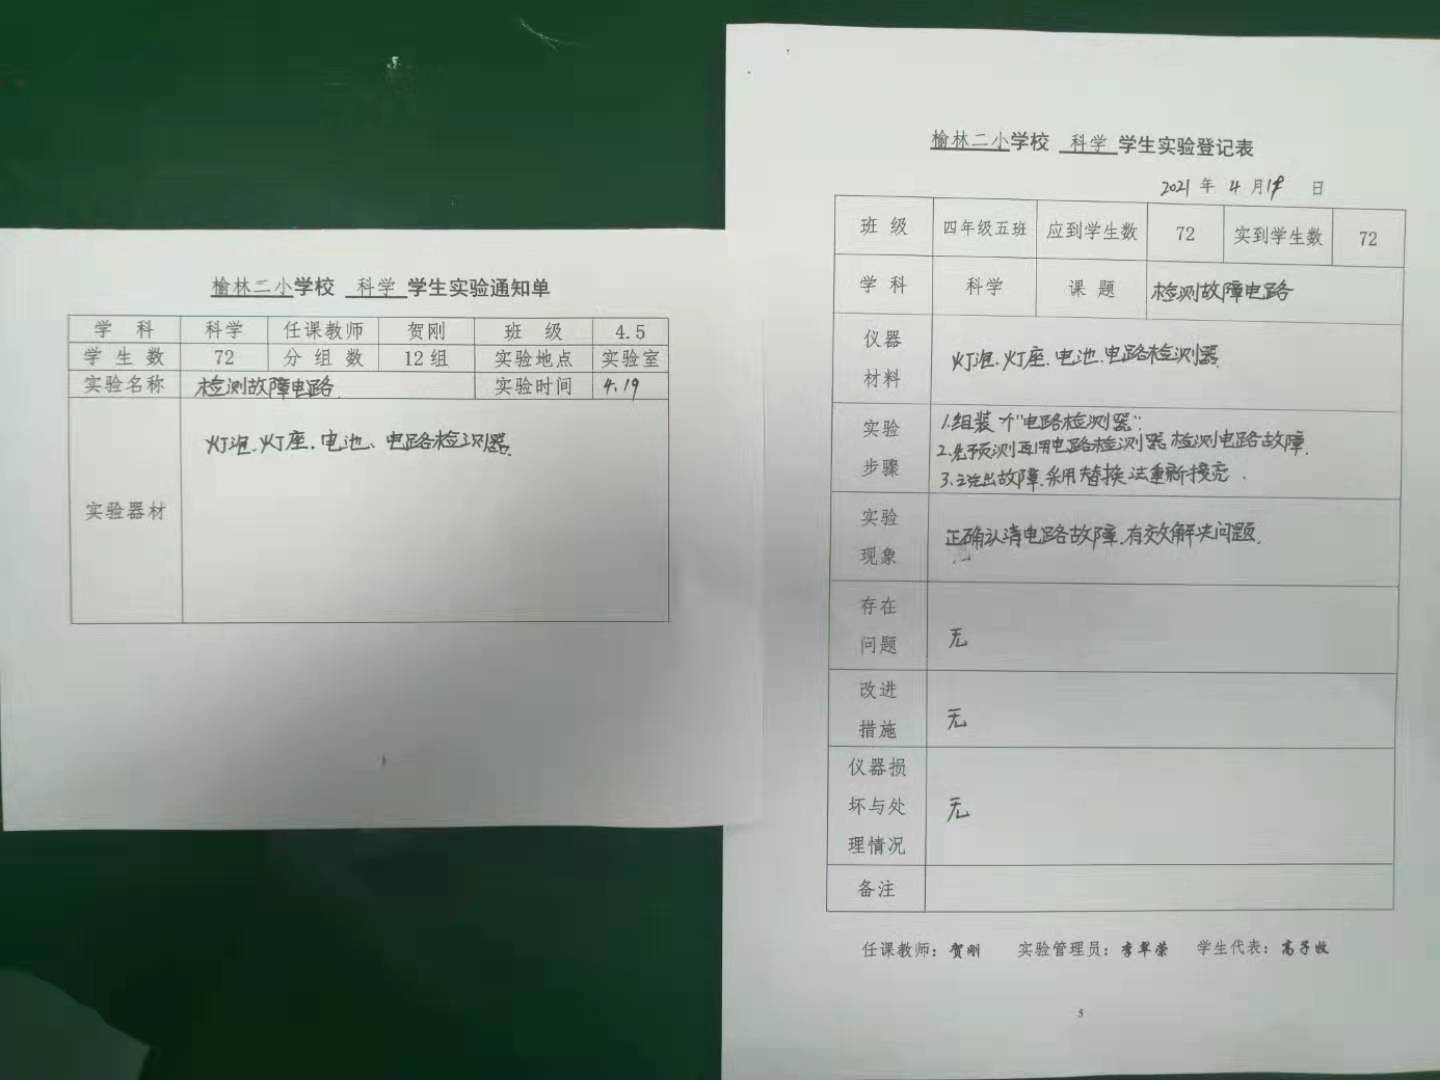 榆林二小学校 科学 学生实验通知单
学 科 科学 任课教师 贺刚 班 级 4.5
学 生 数 72 分 组 数 12组 实验地点 实验室
实验名称 检测故障电路. 实验时间 4.19
实验器材 灯泡.灯座.电池、电路检测器.
榆林二小学校 科学 学生实验登记表
2021 年 4 月 19 日
班 级 四年级五班 应到学生数 72 实到学生数 72
学 科 科学 课 题 检测故障电路
仪器
材料
灯泡.灯座.电池.电路检测器.
实验
步骤
1.组装个"电路检测器".
2.先预测再用电路检测器检测电路故障.
3.找出故障.采用替换法重新接亮.
实验
现象
正确认清电路故障.有效解决问题.
存在
问题
无
改进
措施
无
仪器损
坏与处
理情况
无
备注
任课教师：贺刚 实验管理员：李翠荣 学生代表：高子
5